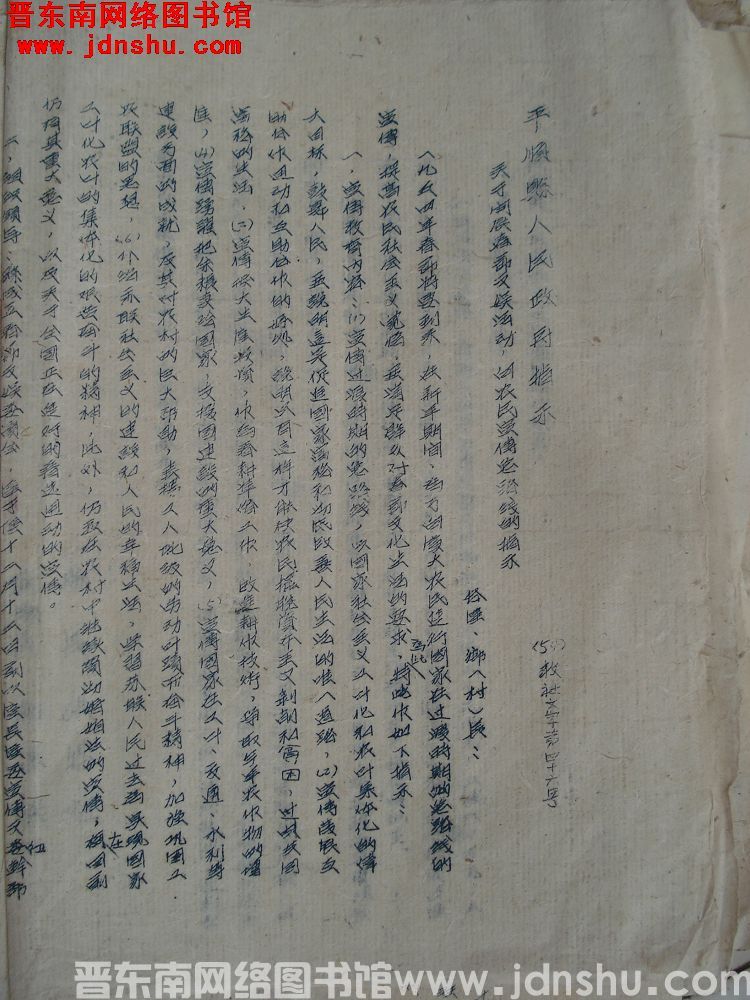 晋东南网络图书馆
www.jdnshu.com
平顺县人民政府指示
关于开展春节文娱活动，向农民宣传总路线的指示
(53)教社文字第四十六号
各区、乡(村)长：
一九五四年春节将要到来，在新年期间，为了向广大农民进行国家在过渡时期总路线的
宣传，提高农民社会主义觉悟，并满足群众对春节文化生活的要求，为此特作如下指示：
一、宣传教育内容：(1)宣传过渡时期的总路线，以国家社会主义工业化和农业集体化的伟
大目标，鼓舞人民，并说明这是促进国家富强和为民改善人民生活的唯一道路，(2)宣传发展互
助合作运动和互助合作的好处，说明只有这样才能使农民摆脱资本主义剥削和穷困，过到共同
富裕的生活，(3)宣传伟大生产成绩，作好春耕准备工作，改进耕作技术，争取今年农作物的增
产，(4)宣传踊跃把余粮卖给国家，支援国家建设的重大意义，(5)宣传国家在工业、交通、水利等
建设方面的成就，及其对农村的巨大帮助，表扬工人阶级的劳动业绩和奋斗精神，加强巩固工
农联盟的思想，(6)介绍苏联社会主义的建设和人民的幸福生活，学习苏联人民过去为实现国家
工业化农业的集体化的艰苦奋斗的精神，此外，仍要在农村中继续深动婚姻法的宣传，在目前
仍有其重大意义，以及关于全国正在进行的普选运动的宣传。
二、组织领导：县成立春节文娱委员会，
晋东南网络图书馆www.jdnshu.com